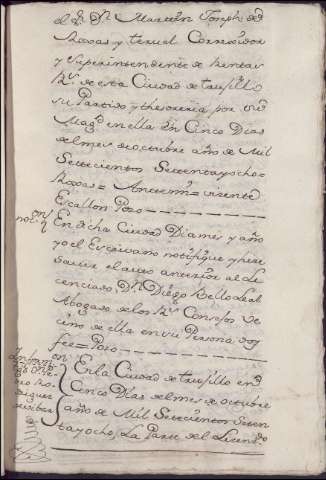 el S.r D.n Martin Joseph de
Roxas y teruel Correxidor
y Superintendente de Rentas
R.s de esta Ciudad de truxillo
su Partido y thesoreria por su
Mag.d en ella En Cinco Dias
del mes de octubre año de Mil
Setecientos Setenta y ocho =
Roxas = Antemi = Vizente
Escallon Pozo
not.on
En dicha Ciudad Dia mes y año
yo el Escrivano notifique y hize
Saver el auto anterior al Li
cenciado D.n Diego Bello Leal
Abogado de los R.s Consejos Ve
cino de ella en su Persona doy
fee = Pozo
En la Ciudad de truxillo en
Cinco Dias del mes de octubre
año de Mil Setecientos Seten
ta y ocho, La Parte del Licenz.do